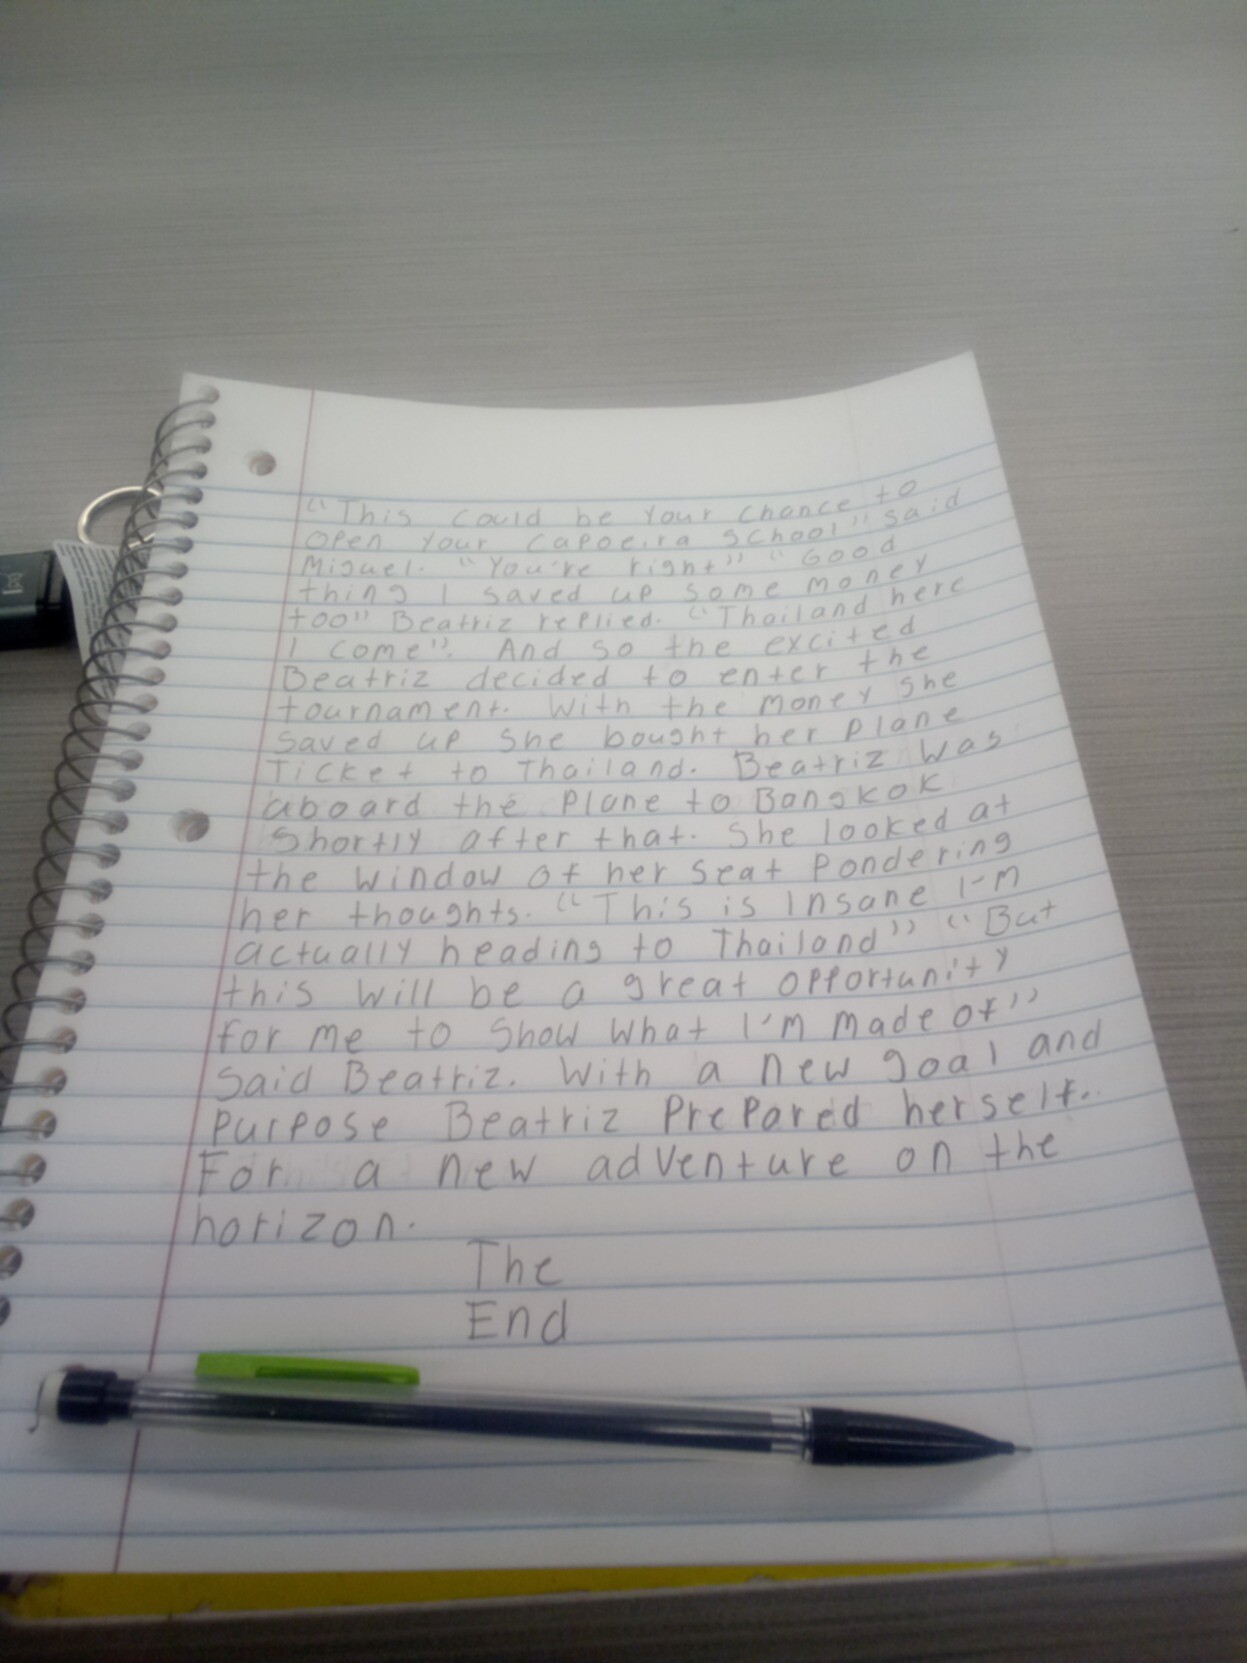 "This could be Your chance to
open Your Capoeira School" said
Miguel. "You're right" "Good
thing I saved up some money
too" Beatriz replied. "Thailand here
I come". And so the excited
Beatriz decided to enter the
tournament. With the money she
saved up she bought her plane
Ticket to Thailand. Beatriz was
aboard the plane to Bangkok
shortly after that. She looked at
the window of her seat pondering
her thoughts. "This is Insane I'm
actually heading to Thailand" "But
this will be a great opportunity
for me to show what I'm made of"
said Beatriz. With a new goal and
purpose Beatriz prepared herself.
For a new adventure on the
horizon.
The
End